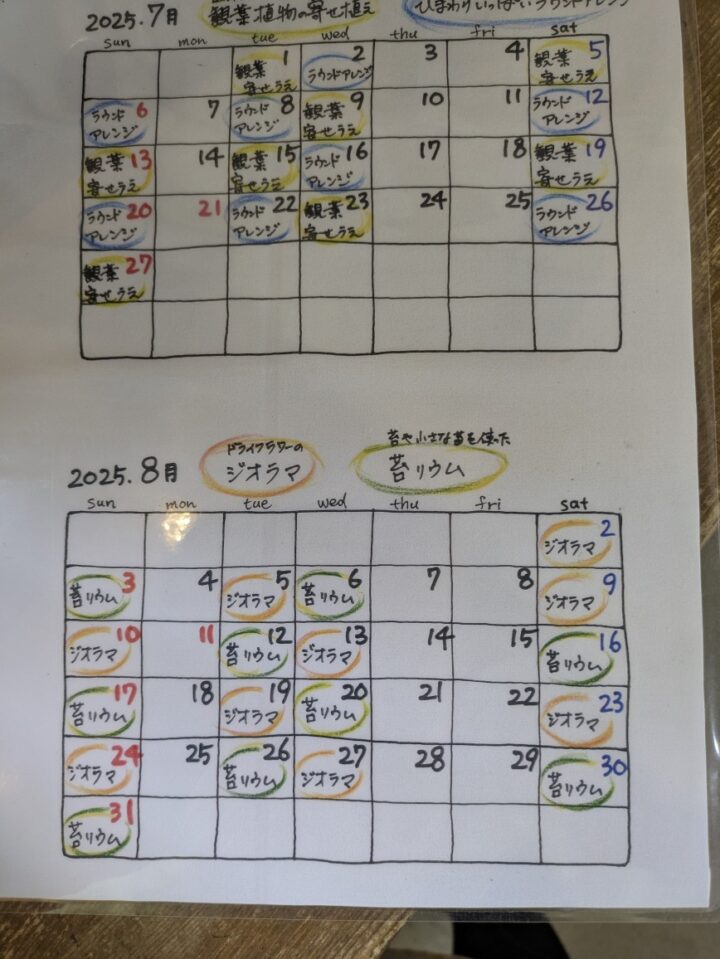 2025.7月
観葉植物の寄せ植え
ひまわりいっぱいラウンドアレンジ
sun mon tue wed thu fri sat
1 2 3 4 5
観葉 ラウンドアレンジ 観葉
寄せうえ 寄せうえ
6 7 8 9 10 11 12
ラウンド ラウンド 観葉 ラウンド
アレンジ アレンジ 寄せうえ アレンジ
13 14 15 16 17 18 19
観葉 観葉 ラウンド 観葉
寄せうえ 寄せうえ アレンジ 寄せうえ
20 21 22 23 24 25 26
ラウンド ラウンド 観葉 ラウンド
アレンジ アレンジ 寄せうえ アレンジ
27
観葉
寄せうえ
2025.8月
ドライフラワーの
ジオラマ
苔や小さな苗を使った
苔リウム
sun mon tue wed thu fri sat
2
ジオラマ
3 4 5 6 7 8 9
苔リウム ジオラマ 苔リウム ジオラマ
10 11 12 13 14 15 16
ジオラマ 苔リウム ジオラマ 苔リウム
17 18 19 20 21 22 23
苔リウム ジオラマ 苔リウム ジオラマ
24 25 26 27 28 29 30
ジオラマ 苔リウム ジオラマ 苔リウム
31
苔リウム